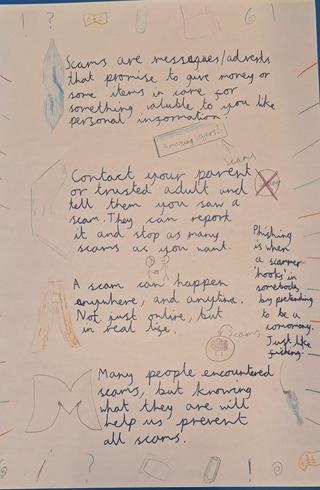 Scams are messages/adverts
that promise to give money or
some items in care for
something valuble to you like
personal information.
amazing offers!
scams
Contact your parent
or trusted adult and
tell them you saw a
scam. They can report
it and stop as many
scams as you want.
Phishing
is when
a scammer
'hooks' in
somebody
by pretending
to be a
company.
Just like
fishing.
A scam can happen
anywhere, and anytime.
Not just online, but
in real life.
scams
Many people encountered
scams, but knowing
what they are will
help us prevent
all scams.